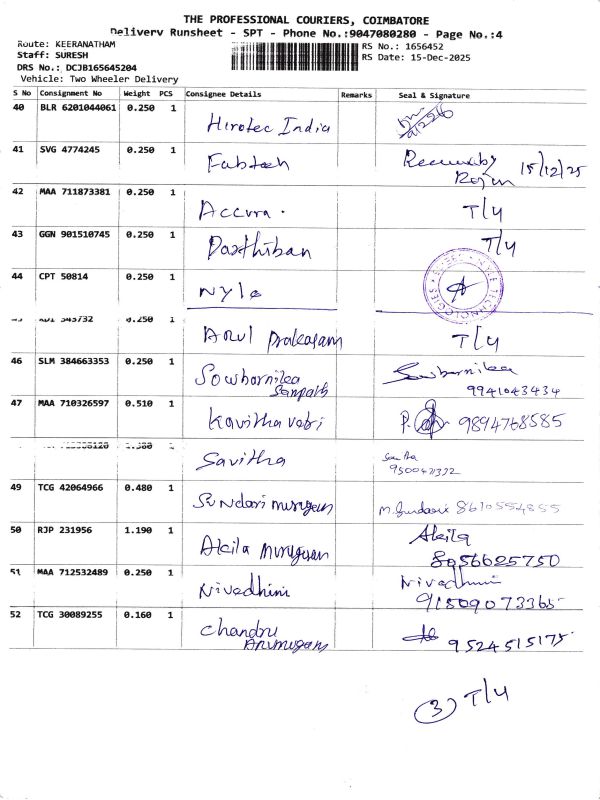 THE PROFESSIONAL COURIERS, COIMBATORE
Delivery Runsheet - SPT - Phone No.:9047080280 - Page No.:4
Route: KEERANATHAM
Staff: SURESH
DRS No.: DCJB165645204
Vehicle: Two Wheeler Delivery
RS No.: 1656452
RS Date: 15-Dec-2025
S No Consignment No Weight PCS Consignee Details Remarks Seal & Signature
40 BLR 6201044061 0.250 1 Hirotec India
41 SVG 4774245 0.250 1 Fabtech 15/12/25
42 MAA 711873381 0.250 1 Accura. T/4
43 GGN 901510745 0.250 1 Parthiban T/4
44 CPT 50814 0.250 1 Nyle
343732 0.250 1 Arul Prakasam T/4
46 SLM 384663353 0.250 1 Sowbarnika Sampath Sowbarnika
9941043434
47 MAA 710326597 0.510 1 Kavitha vetri 9894768585
Savitha
49 TCG 42064966 0.480 1 Sundari murugan M. Sundari 8610554855
50 RJP 231956 1.190 1 Akila Murugan Akila
8056625750
51 MAA 712532489 0.250 1 Nivedhini Nivedhini
52 TCG 30089255 0.160 1 Chandru Arumugam 9524515175
3 T/4